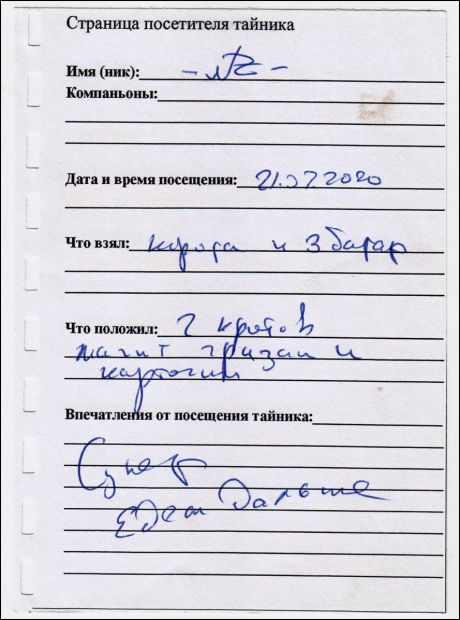 Страница посетителя тайника
Имя (ник):
Компаньоны:
Дата и время посещения: 21.07.2020
Что взял: и 3 батар
Что положил: 2 кротов
магнит и
Впечатления от посещения тайника:
Супер
Едем дальше